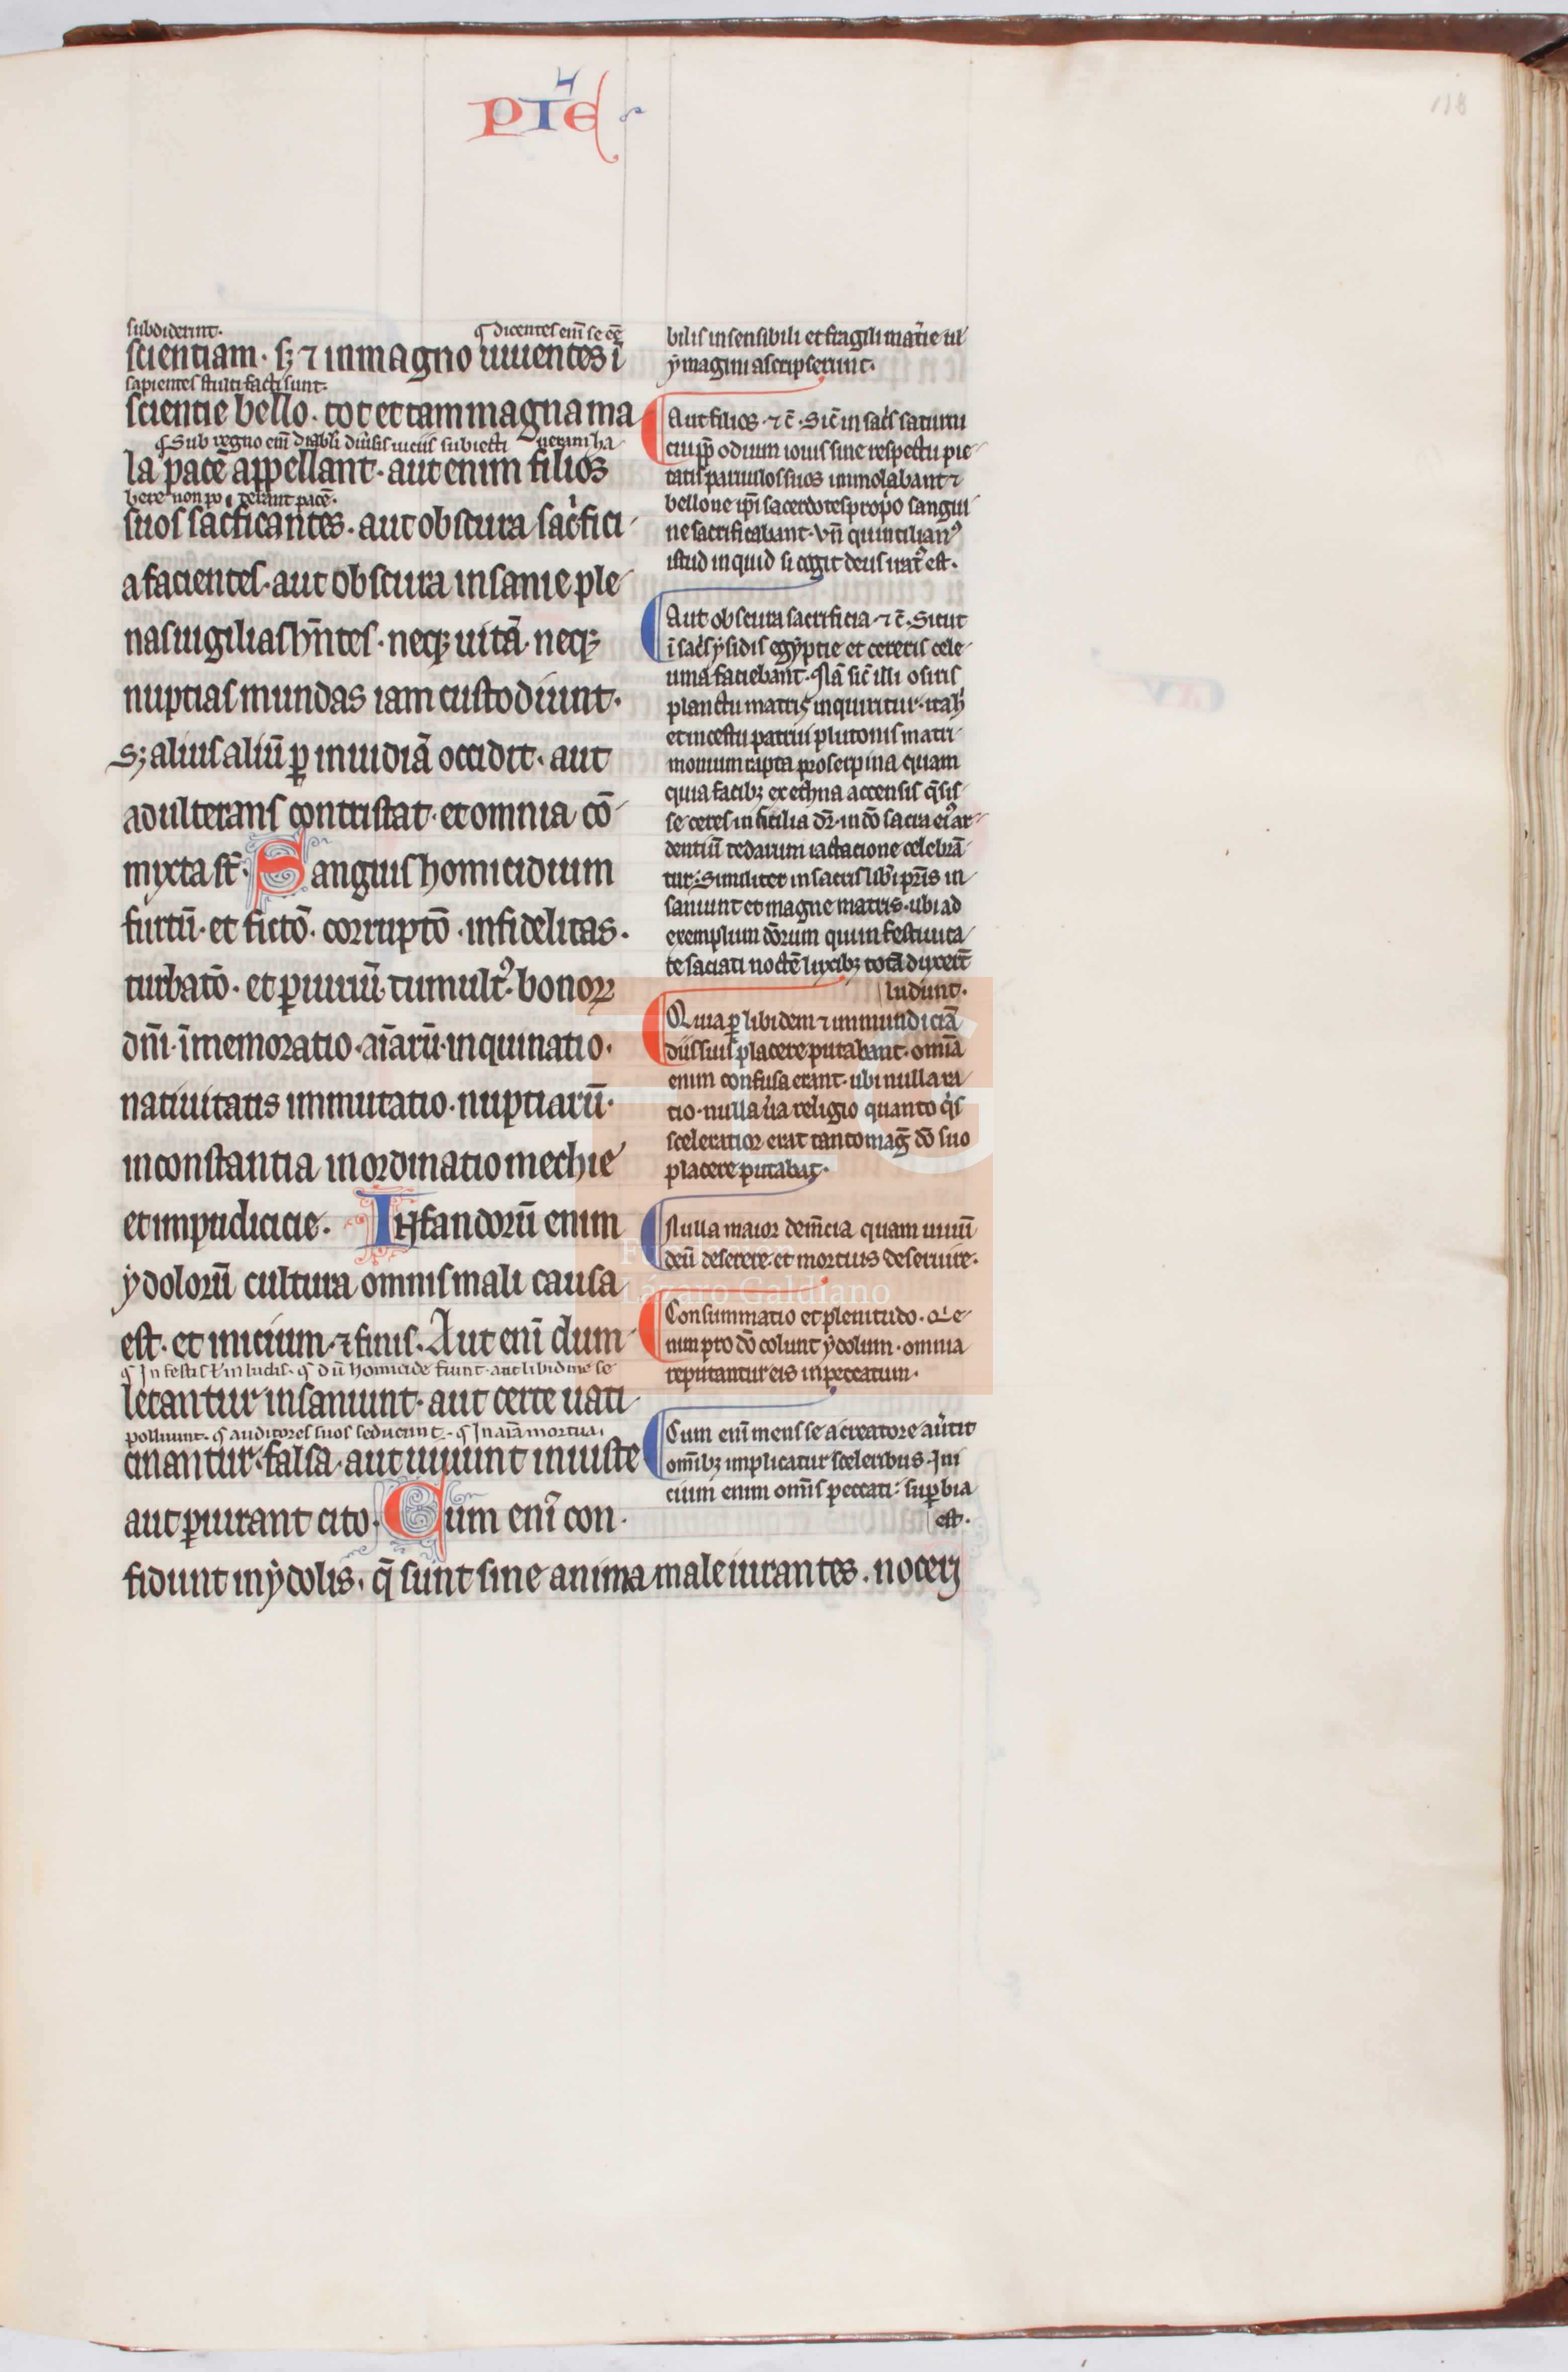 PIĒ
118
subdiderunt.
¶ dicentes enī se eē
scientiam · sꝫ ⁊ in magno uiuentes ī
sapientes stulti facti sunt.
scientie bello · tot et tam magna ma
¶ Sub regno enī diaboli diūsis uiciis subiecti ueram ha
la pacē appellant · aut enim filios
bere non po terant pacē.
suos sacͥficantes · aut obscura sacͥfici
a facientes · aut obscura insanie ple
nas uigilias hn̄tes · neqꝫ uitā · neqꝫ
nuptias mundas iam custodiunt ·
Sꝫ alius aliū ꝑ inuidiā occidit · aut
adulterans contristat · et omnia cō
myxta st̄ · Sanguis homicidium
furtū · et fictō · corruptō · infidelitas ·
turbatō · et ꝑiuriū · tumultꝰ · bonoꝝ
dn̄i · īmemoratio · aīarū · inquinatio ·
natiuitatis immutatio · nuptiarū ·
inconstantia inordinatio mechie
et impudicicie · Infandorū enim
ydolorū cultura omnis mali causa
est · et inicium · ⁊ finis · Aut enī dum
¶ In festis ł in ludis · ¶ dū homicide fiunt · aut libidine se
letantur insaniunt · aut certe uati
polluunt · ¶ auditores suos seducunt · ¶ In aīa mortua
cinantur · falsa · aut uiuunt iniuste
aut ꝑiurant cito · Cum enī con
fidunt in ydolis · q̄ sunt sine anima male iurantes · noceri
bilis insensibili et fragili mat̄ie ul
ymagini ascripserunt ·
Aut filios · ⁊ c̄ · Sic̄ in sac̄s saturni
cui ꝓp̄ odium iouis sine respectu pie
tatis paruulos suos immolabant ⁊
bellone ip̄i sacerdotes prop̄o sangui
ne sacrificabant · Vn̄ quintilianꝰ
istud inquid si cogit deus iratꝰ est ·
Aut obscura sacrificia · ⁊ c̄ · Sicut
ī sac̄s ysidis egyptie et cereris cele
uma faciebant · Nā sic̄ illi osiris
planctu matris inquiritur · ita hͥ
et incestu patrui plutonis matri
monium rapta proserpina quam
quia facibꝫ ex ethna accensis q̄sis
se ceres in sicilia dr̄ · in dō sacra eiꝰ ar
dentiū tedarum iactacione celebrā
tur · Similiter in sacris lib̄i pr̄is in
saniunt et magne matris · ubi ad
exemplum dōrum qui in festiuita
te saciati noctē luxibꝫ totā duxer̄t
ludunt ·
Quia ꝑ libidem ⁊ immundiciā
diis suis placere putabant · omīa
enim confusa erant · ubi nulla ra
tio · nulla ūa religio quanto q̄s
sceleratior erat tanto maḡ dō suo
placere putabat ·
Nulla maior dem̄cia quam uiuū
deū deserere · et mortuis deseruire ·
Consummatio et plenitudo · Qͥ e
nim pro dō colunt ydolum · omnia
reputantur eis in peccatum ·
Cum enī mens se a creatore au̾tit
om̄ibꝫ implicatur sceleribus · Ini
cium enim om̄is peccati : suꝑbia
est ·
Fundación
Lázaro Galdiano